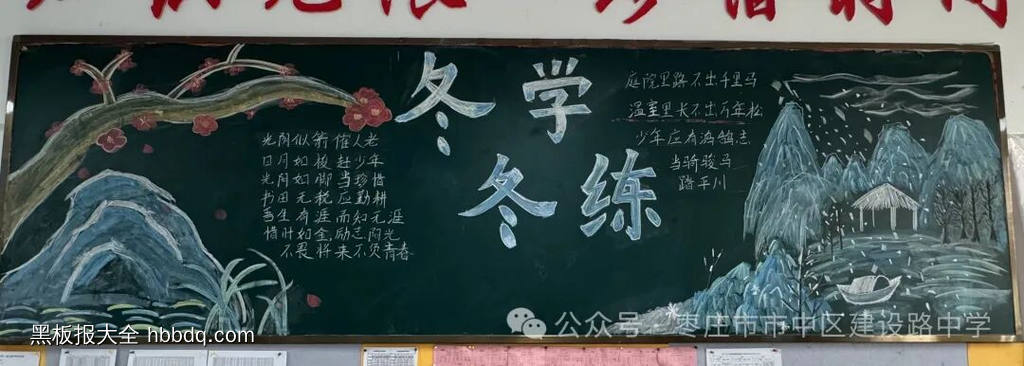 冬学
冬练
光阴似箭催人老
日月如梭赶少年
光阴如脚当珍惜
书田无税应勤耕
吾生有涯而知无涯
惜时如金,励志阳光
不畏将来不负青春
庭院里跑不出千里马
温室里长不出万年松
少年应有鸿鹄志
当骑骏马
踏平川
黑板报大全 hbbdq.com
公众号 · 枣庄市市中区建设路中学